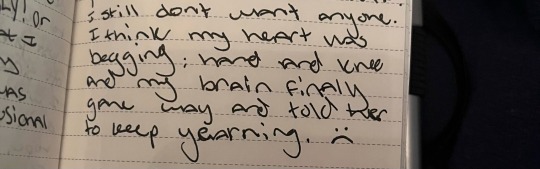 LY! Or
at I
y
was
ssional
i still don't want anyone.
I think my heart was
begging; hand and knee
and my brain finally
gave way and told her
to keep yearning. :(